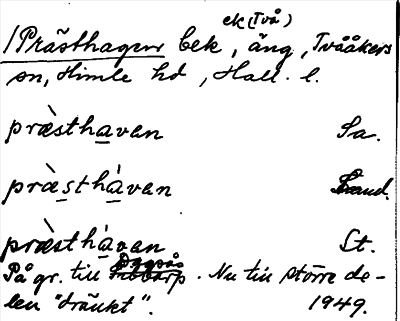 ek (Två)
/Prästhagen bek, äng, Tvååkers
sn, Himle hd, Hall. l.
præ̀sthavan Sa.
præ̀sthávan Sand.
præ̀sthávan St.
På gr. till . Nu till större de-
len "dränkt". 1949.